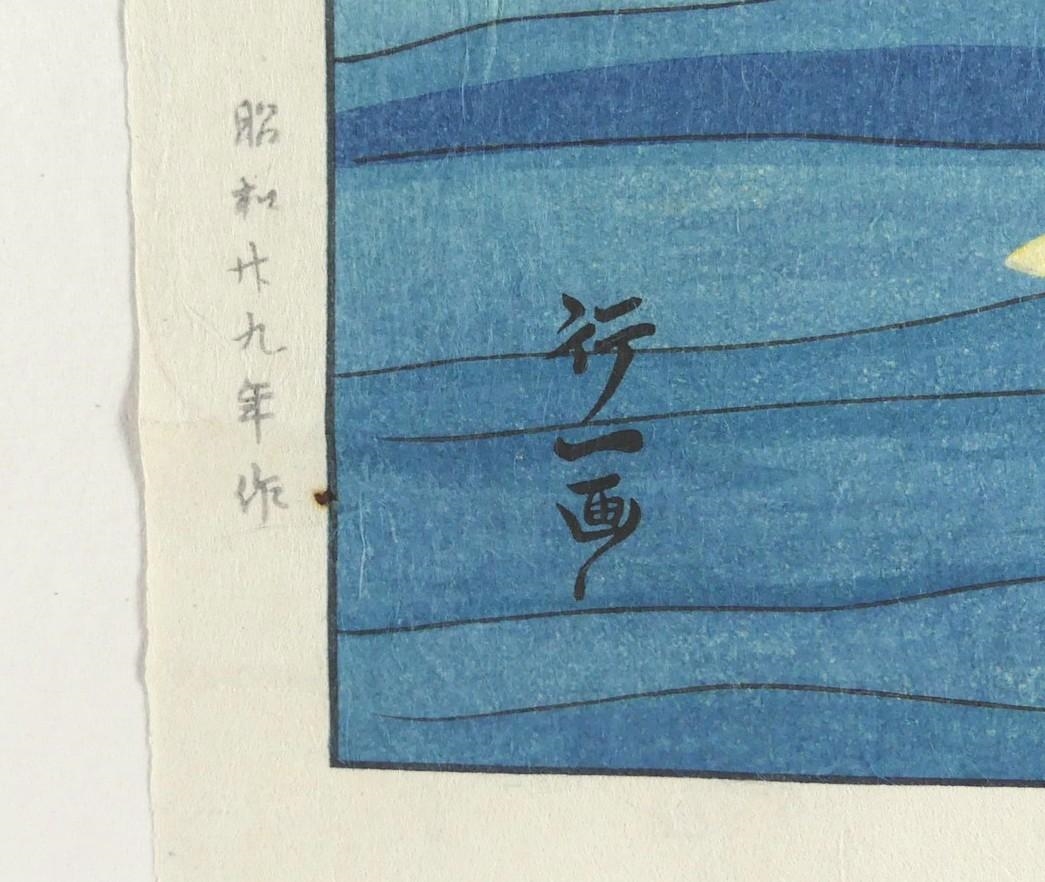 行一画
昭和廿九年作